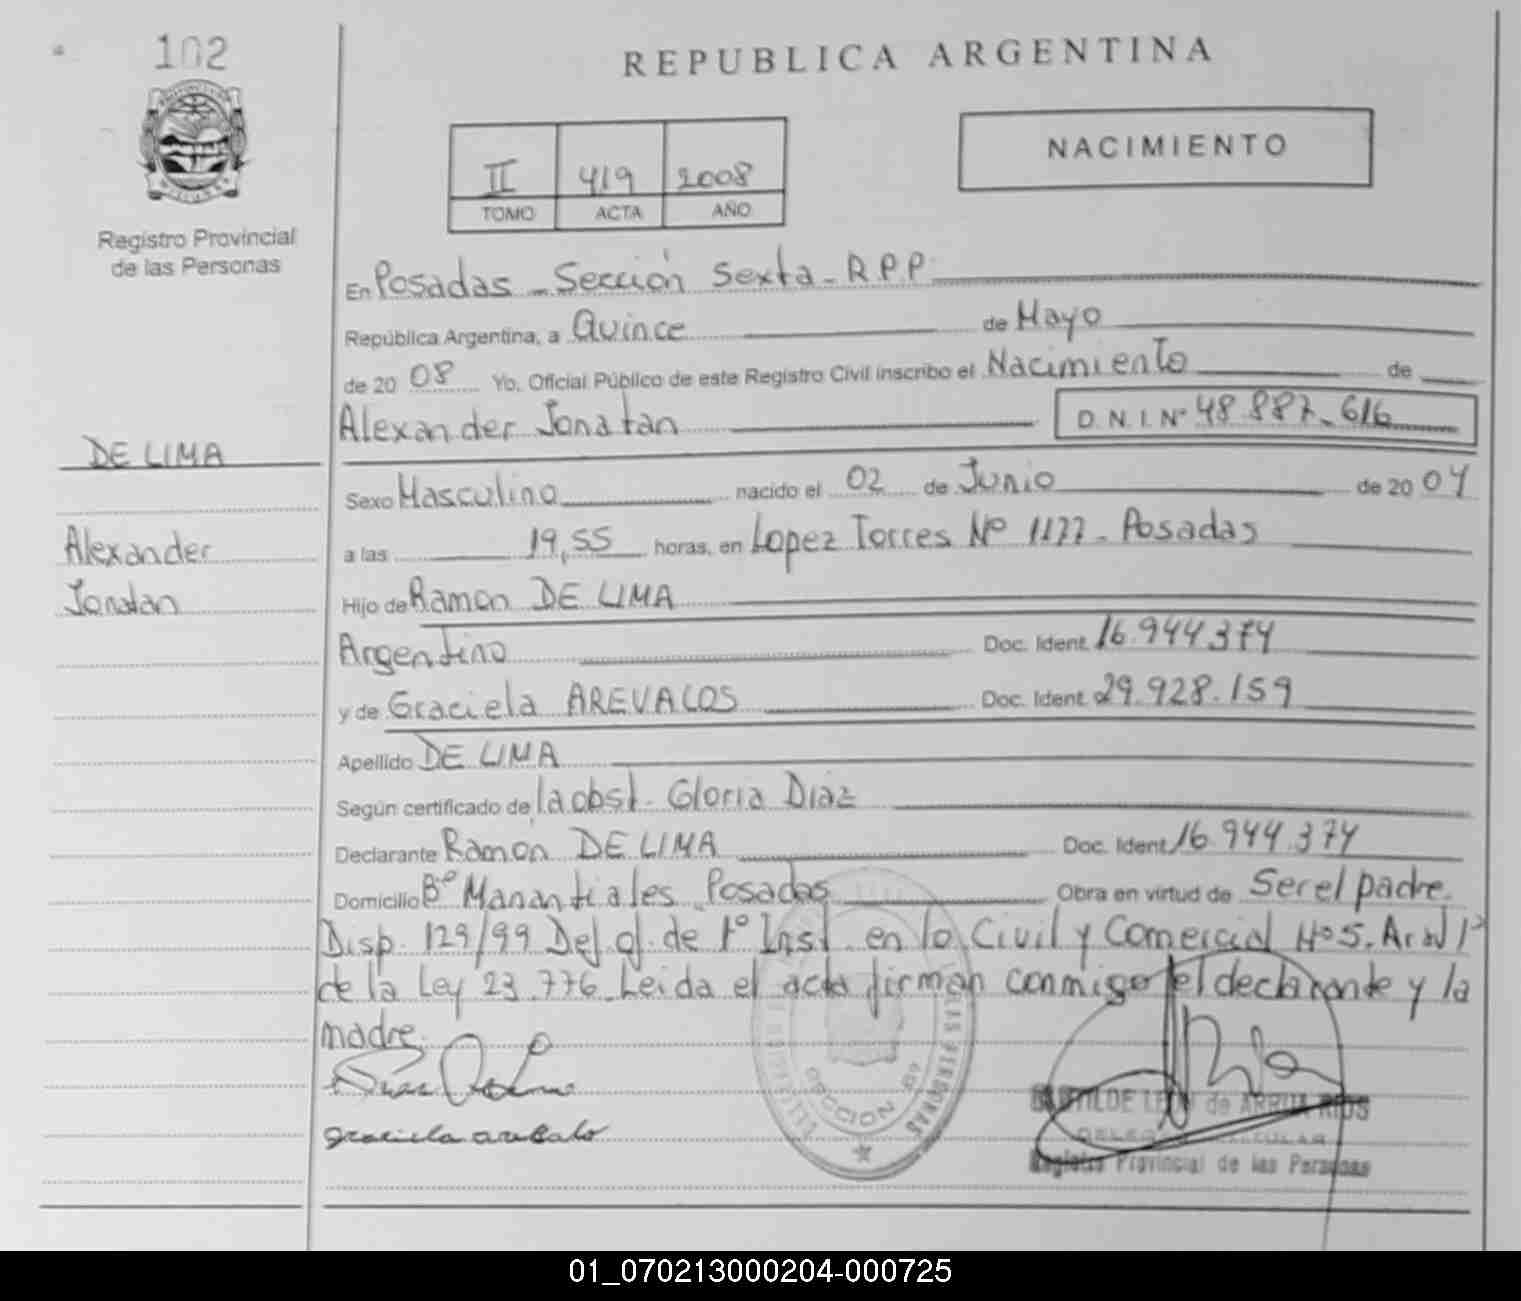 102
REPUBLICA ARGENTINA
NACIMIENTO
II 419 2008
TOMO ACTA AÑO
Registro Provincial
de las Personas
En Posadas - Sección Sexta - R.P.P.
República Argentina, a Quince de Mayo
de 20 08 Yo, Oficial Público de este Registro Civil inscribo el Nacimiento de
Alexander Jonatan D.N.I. Nº 48.887.616
DE LIMA
Sexo Masculino nacido el 02 de Junio de 20 04
Alexander
a las 19,55 horas, en Lopez Torres Nº 1177 - Posadas
Jonatan
Hijo de Ramon DE LIMA
Argentino Doc. Ident. 16.944.374
y de Graciela AREVALOS Doc. Ident. 29.928.159
Apellido DE LIMA
Según certificado de la obst. Gloria Diaz
Declarante Ramón DE LIMA Doc. Ident. 16.944.374
Domicilio Bº Manantiales Posadas Obra en virtud de Ser el padre.
Disp. 129/99 Def. of. de 1º Inst. en lo Civil y Comercial Nº 5. 1º
de la Ley 23.776. Leida el acta firman conmigo el declarante y la
madre.
graciela
SECCION
de ARRUA RIOS
Registro Provincial de las Personas
01_070213000204-000725